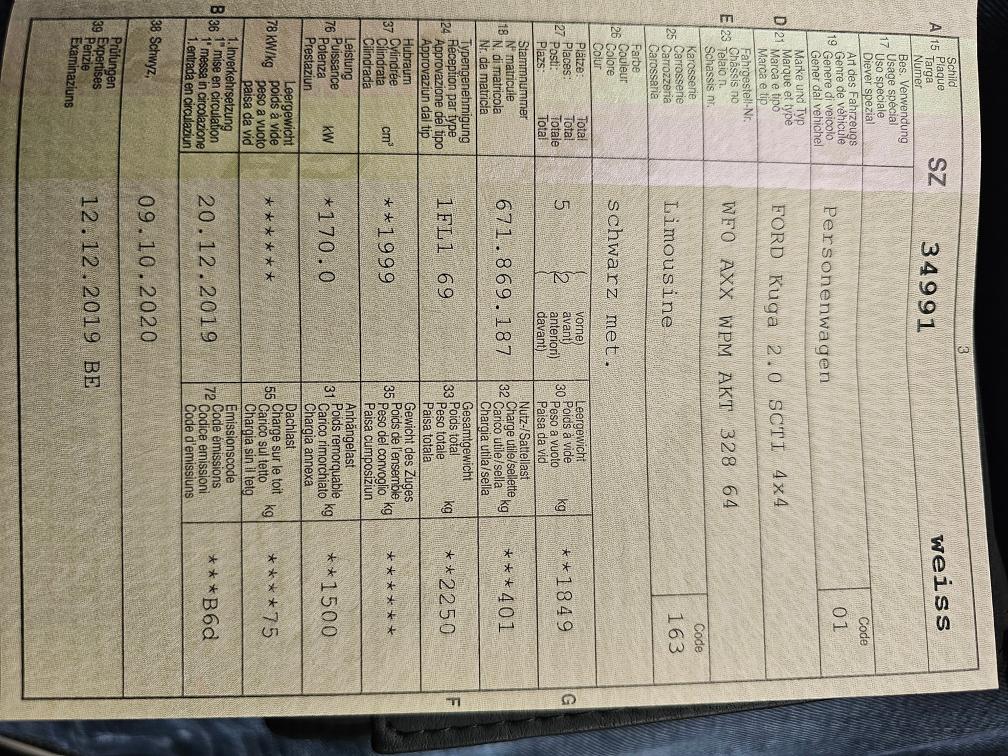 3
A 15 Schild
Plaque
Targa
Numer
SZ 34991 weiss
17 Bes. Verwendung
Usage spécial
Uso speciale
Diever spezial
19 Art des Fahrzeugs
Genre de véhicule
Genere di veicolo
Gener dal vehichel
Personenwagen
Code
01
D 21 Marke und Typ
Marque et type
Marca e tipo
Marca e tip
FORD Kuga 2.0 SCTI 4x4
E 23 Fahrgestell-Nr.
Châssis no
Telaio n.
Schassis nr.
WF0 AXX WPM AKT 328 64
25 Karosserie
Carosserie
Carrozzeria
Carossaria
Limousine
Code
163
26 Farbe
Couleur
Colore
Colur
schwarz met.
27 Plätze: Total
Places: Total
Posti: Totale
Plazs: Total
5
(2
vorne)
avant)
anteriori)
davant)
30 Leergewicht
Poids à vide
Peso a vuoto
Paisa da vid
kg
**1849
G
18 Stammnummer
N° matricule
N. di matricola
Nr. da matricla
671.869.187
32 Nutz-/Sattellast
Charge utile/sellette
Carico utile/sella
Chargia utila/sella
kg
***401
24 Typengenehmigung
Réception par type
Approvazione del tipo
Approvaziun dal tip
1FL1 69
33 Gesamtgewicht
Poids total
Peso totale
Paisa totala
kg
**2250
F
37 Hubraum
Cylindrée
Cilindrata
Cilindrada
cm³
**1999
35 Gewicht des Zuges
Poids de l'ensemble
Peso del convoglio
Paisa cumposiziun
kg
******
76 Leistung
Puissance
Potenza
Prestaziun
kW
*170.0
31 Anhängelast
Poids remorquable
Carico rimorchiato
Chargia annexa
kg
**1500
78 kW/kg
Leergewicht
poids à vide
peso a vuoto
paisa da vid
******
55 Dachlast
Charge sur le toit
Carico sul tetto
Chargia sin il tetg
kg
****75
B 36 1. Inverkehrsetzung
1re mise en circulation
1a messa in circolazione
1. entrada en circulaziun
20.12.2019
72 Emissionscode
Code émissions
Codice emissioni
Code d'emissiuns
***B6d
38 Schwyz,
09.10.2020
39 Prüfungen
Expertises
Perizie
Examinaziuns
12.12.2019 BE